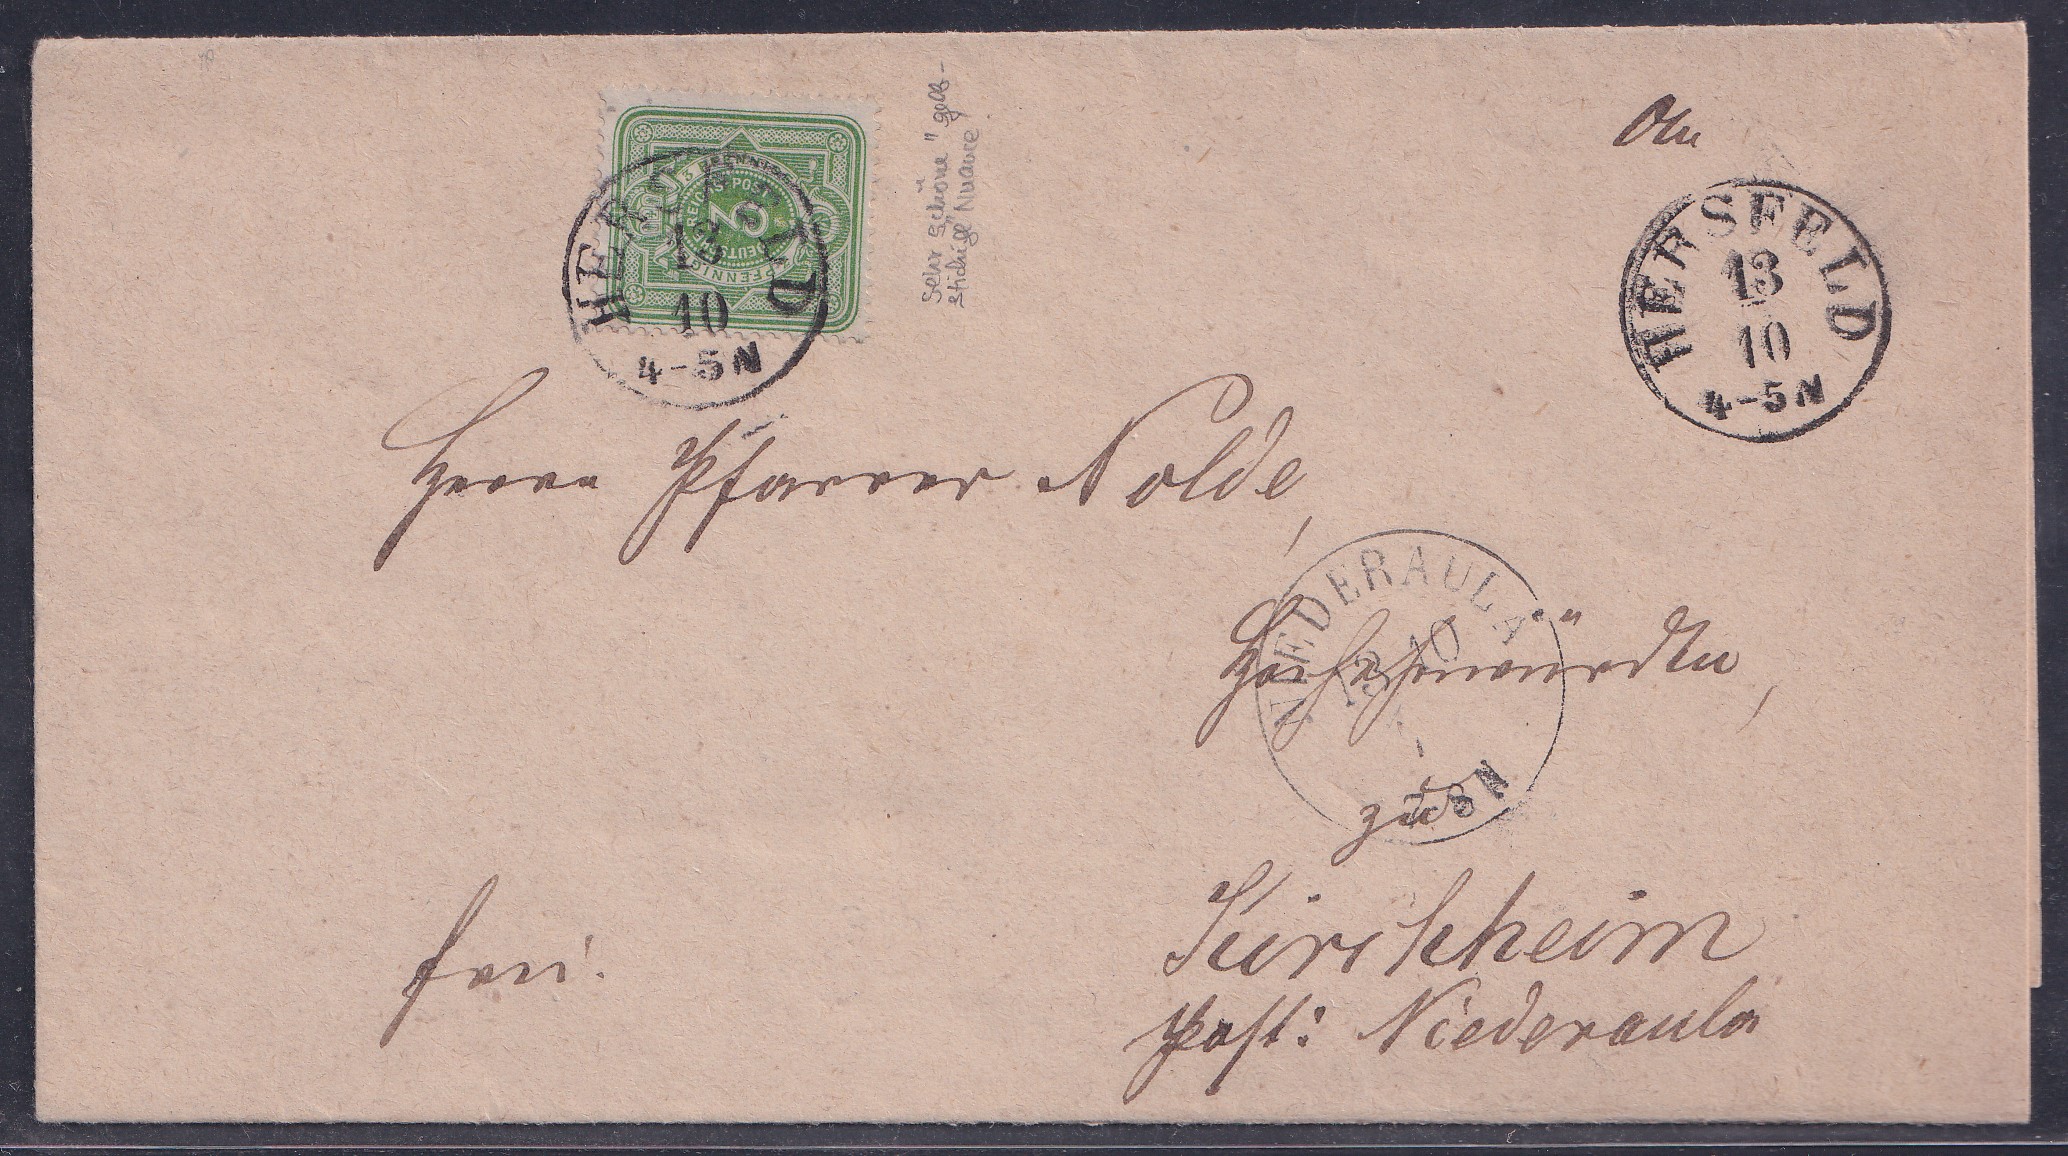 An
HERSFELD
13
10
4-5N
HERSFELD
13
10
4-5N
3 PFENNIG
DEUTSCHE REICHS-POST
3
PFENNIG
sehr schöne "gelb-
stichige" Nuance
Herrn Pfarrer Nolde,
NIEDERAULA
13 10
7-8N
Hochehrwürden,
zu
Kirchheim
Post: Niederaula
frei.